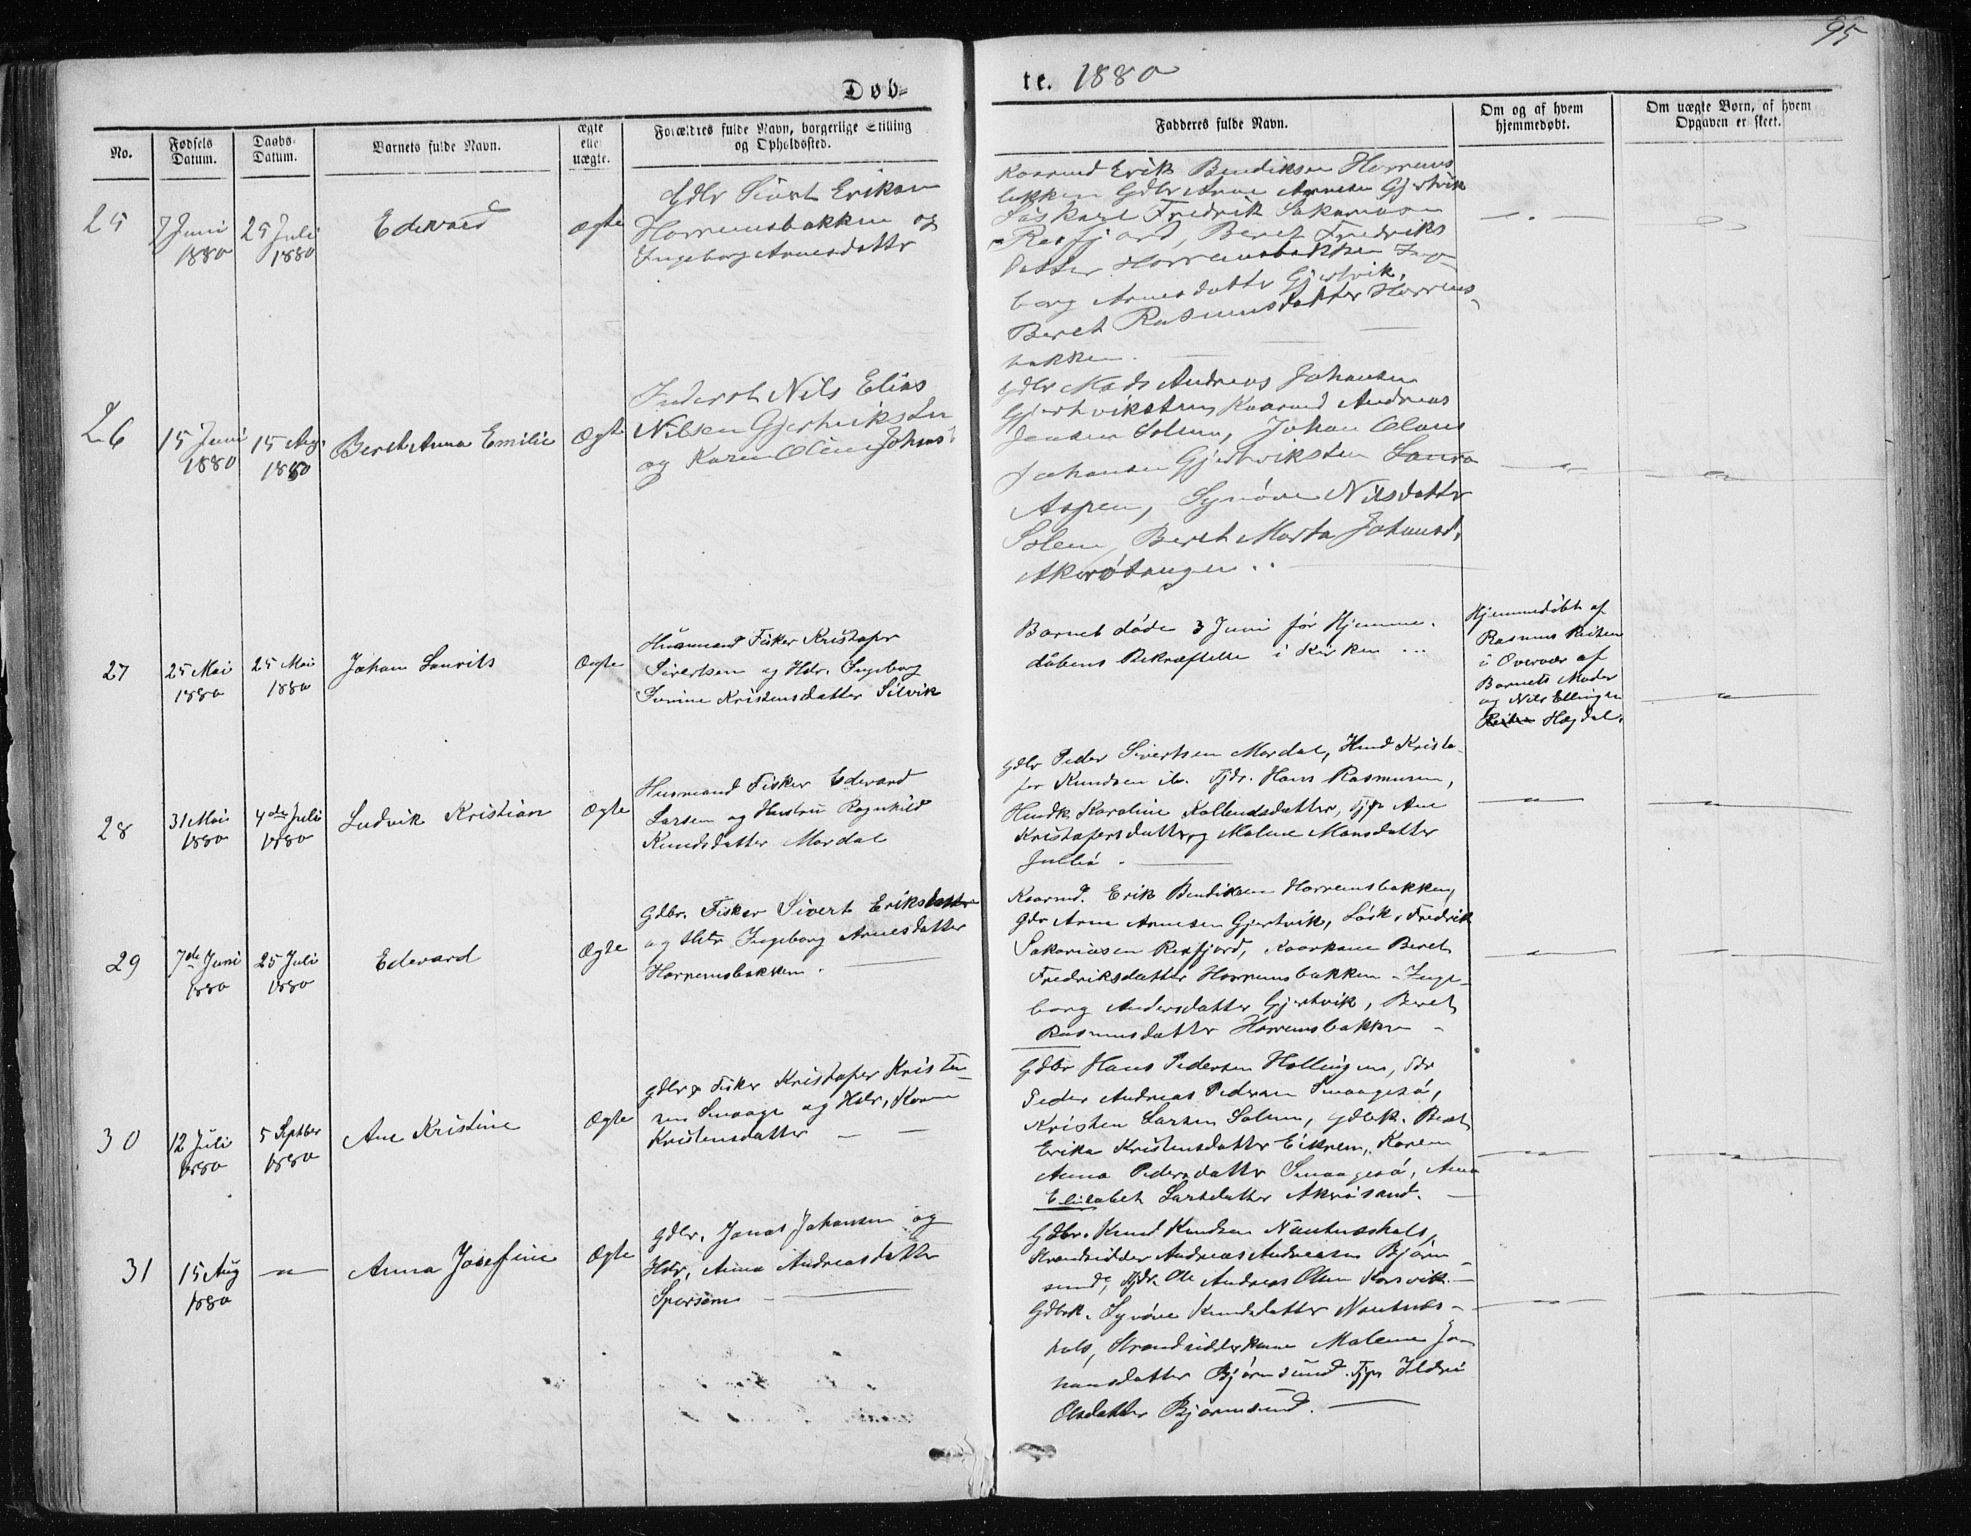 95
Døb-
te. 1880
No.
Fødsels Datum.
Daabs-Datum.
Barnets fulde Navn.
ægte eller uægte.
Forældres fulde Navn, borgerlige Stilling og Opholdssted.
Fadderes fulde Navn.
Om og af hvem hjemmedøbt.
Om uægte Børn, af hvem Opgaven er skeet.
25
7 Juni 1880
25 Juli 1880
Edvard
ægte
Gdbr Sivert Eriksen
Horremsbakken og
Ingeborg Arnesdatter
Kaarmd Erik Bendiksen Horrems
bakken Gdbr Arne Arnesen Gjertvik
Løskarl Fredrik Sakariasen
Rexfjord, Beret Fredriks
datter Horremsbakken Inge
borg Arnesdatter Gjertvik,
Beret Rasmusdatter Horrems-
bakken.
26
15 Juni 1880
15 Aug. 1880
Beret Anna Emilie
Ægte
Inderst Nils Elias
Nilsen Gjertvikstrn
og Karen Oline Johns
Gdbr Mads Andreas Johansen
Gjertvikstrn, Kaarmd Andreas
Jensen Solem, Johan Olaus
Johansen Gjertviksten Laura
Aspen, Synøve Nilsdatter
Solem, Beret Marta Johansd.
Akerøtangen ..
27
25 Mai 1880
25 Mai 1880
Johan Laurits
Ægte
Husmand Fisker Kristofer
Sivertsen og Hstr. Ingeborg
Kristensdatter Silvik
Barnet døde 3 Juni før Hjemme-
døbens Bekræftelse i Kirken ...
Hjemmedøbt af
Rasmus Reiten
i Overvær af
Barnets Moder
og Nils Ellingsen
Reiten Hagdal.
28
31 Mai 1880
4de Juli 1880
Ludvik Kristian
Ægte
Husmand Fisker Edvard
Larsen og Hustru Ragnhild
Knudsdatter Mordal
Gdbr Peder Sivertsen Mordal, Hmd Kristo-
fer Knudsen ib. Tjdr. Hans Rasmusen,
Hmdk Karoline Kollensdatter, Tjp Ane
Kristofersdatter, Malene Monsdatter
Julbø.
29
7de Juni 1880
25 Juli 1880
Edevard
Ægte
Gdbr. Fisker Sivert Eriksdatter
og Hstr Ingeborg Arnesdatter
Horremsbakken.
Kaarmd. Erik Bendiksen Horremsbakken,
Gdr Arne Arnesen Gjertvik, Løsk. Fredrik
Sakariasen Rexfjord, Kaarkone Beret
Fredriksdatter Horremsbakken - Inge-
borg Andersdatter Gjertvik, Beret
Rasmusdatter Horremsbakken -
30
12 Juli 1880
5 Septber 1880
Ane Kristine
Ægte
Gdbr & Fisker Kristofer Kristen-
sen Smaage og Hstr. Karen
Kristensdatter
Gdbr Hans Pedersen Hollingen, Gdr
Peder Andreas Pedersen Smaagesø,
Kristen Larsen Solem, Gdbk. Beret
Erika Kristensdatter Eikrem, Karen
Anna Pedersdatter Smaagesø, Anna
Elisabet Larsdatter Akrøsand.
31
15 Aug 1880
Anna Josefine
Ægte
Gdbr. Jonas Johansen og
Hstr. Anna Andreasdatter
Spersom
Gdbr. Knud Knudsen Nautneshals,
Strandsidder Andreas Andreasen Bjørn
sund, Tjdr. Ole Andreas Olsen Korsvik.
Gdbrk. Synøve Knudsdatter Nautnes-
hals, Strandsidderkone Malene Jo
hansdatter Bjørnsund. Tjp Ildri
Olsdatter Bjørnsund.